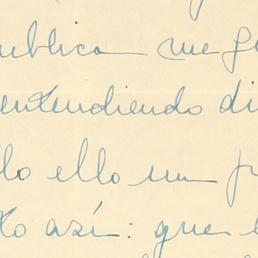 ublica me gu
entendiendo di
llo ello un p
to así: que l